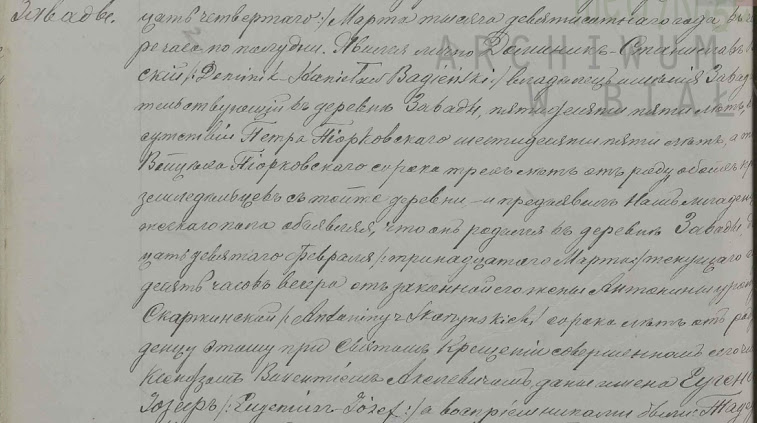 Завады.
цать четвертаго:/ Марта тысяча девятисотнаго года въ
ро часа по полудни. Явился лично Доминикъ-Станиславъ
скій /:Dominik-Stanisław Bagieński:/ владѣлецъ имѣнія Завад
тельствующій въ деревнѣ Завады, пятидесяти пяти лѣтъ, в
сутствіи Петра Піорковскаго шестидесяти пяти лѣтъ, а т
Піорковскаго сорока трехъ лѣтъ отъ роду обоихъ кр
земледѣльцевъ съ тойже деревни – и предъявилъ Намъ младен
жескаго пола объявляя, что онъ родился въ деревнѣ Завады д
цать девятаго Февраля /:тринадцатаго Марта:/ текущаго
десять часовъ вечера отъ законной его жены Антонины урож
Скаржинской /:Antoniny z Skarzyńskich:/ сорока лѣтъ отъ ро
денцу этому при Святомъ Крещеніи совершенномъ сего чи
Ксендзомъ Викентіемъ даны имена Еугені
Іозефъ /:Eugeniusz-Józef:/ а воспріемниками были: Таде
ARCHIWUM
W BIAŁ